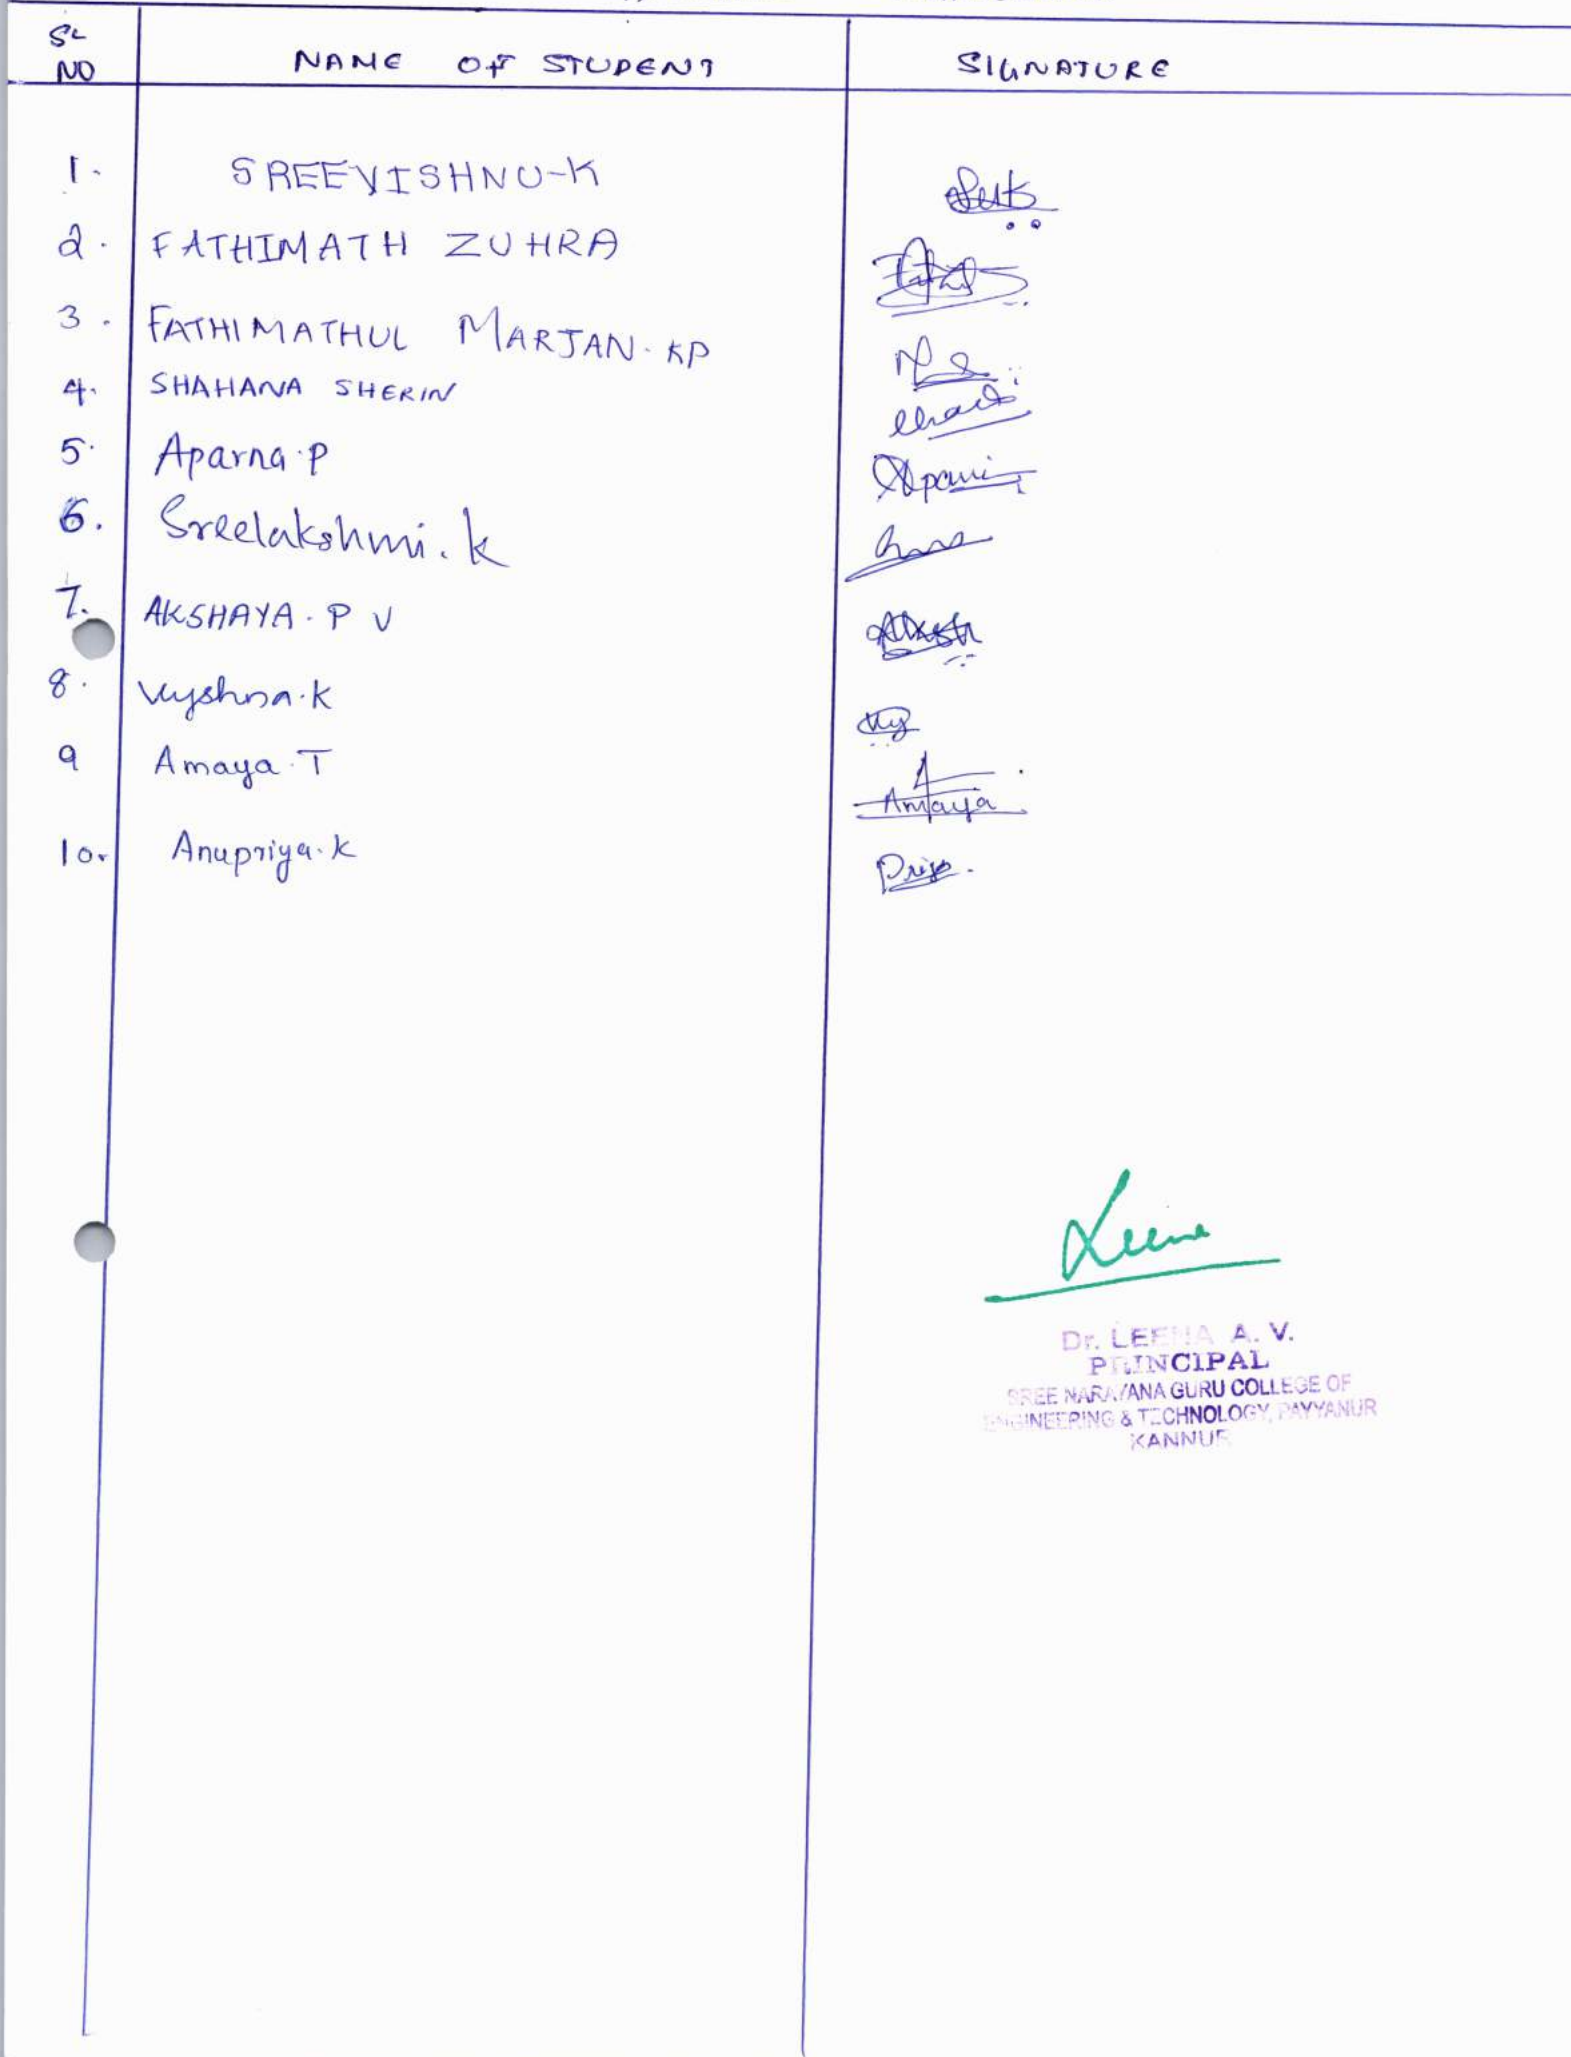 SL
NO NAME OF STUDENT SIGNATURE
1. SREEVISHNU-K
2. FATHIMATH ZUHRA
3. FATHIMATHUL MARJAN. KP
4. SHAHANA SHERIN
5. Aparna.P
6. Sreelakshmi.k
7. AKSHAYA. P V
8. Vyshna.K
9 Amaya.T Amaya
10. Anupriya.k Priya.
Leena
Dr. LEENA A. V.
PRINCIPAL
SREE NARAYANA GURU COLLEGE OF
ENGINEERING & TECHNOLOGY, PAYYANUR
KANNUR